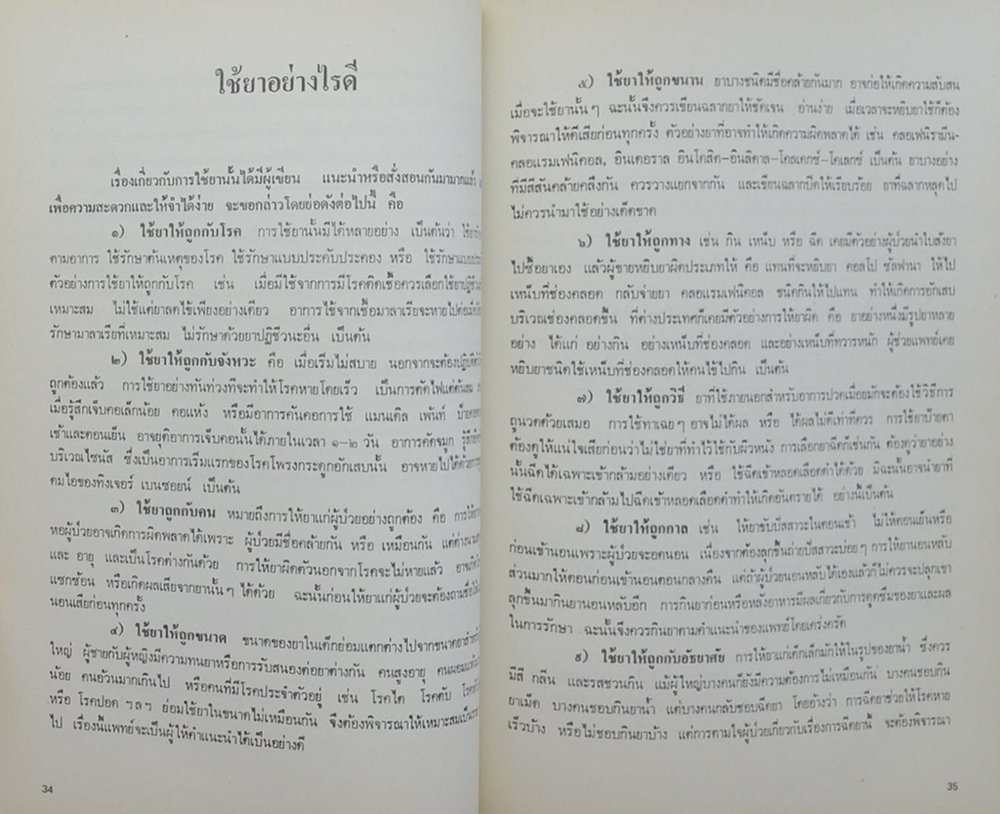 ใช้ยาอย่างไรดี
เรื่องเกี่ยวกับการใช้ยานั้นได้มีผู้เขียน แนะนำหรือสั่งสอนกันมามากแล้ว
เพื่อความสะดวกและให้จำได้ง่าย จะขอกล่าวโดยย่อดังต่อไปนี้ คือ
๑) ใช้ยาให้ถูกกับโรค การใช้ยานั้นมีได้หลายอย่าง เป็นต้นว่า
ตามอาการ ใช้รักษาต้นเหตุของโรค ใช้รักษาแบบประคับประคอง หรือ ใช้รักษาแบบ
ตัวอย่างการใช้ยาให้ถูกกับโรค เช่น เมื่อมีไข้จากการมีโรคติดเชื้อควรเลือกใช้ยาปฏิชีวนะ
เหมาะสม ไม่ใช้แต่ยาลดไข้เพียงอย่างเดียว อาการไข้จากเชื้อมาลาเรียจะหายไปต่อเมื่อ
รักษามาลาเรียที่เหมาะสม ไม่รักษาด้วยยาปฏิชีวนะอื่น เป็นต้น
๒) ใช้ยาให้ถูกกับจังหวะ คือ เมื่อเริ่มไม่สบาย นอกจากจะต้องปฏิบัติตัว
ถูกต้องแล้ว การใช้ยาอย่างทันท่วงทีจะทำให้โรคหายโดยเร็ว เป็นการตัดไฟแต่ต้นลม
เมื่อรู้สึกเจ็บคอเล็กน้อย คอแห้ง หรือมีอาการคันคอการใช้ แมนเดิล เพ้นท์ ป้ายคอ
เช้าและตอนเย็น อาจยุติอาการเจ็บคอนั้นได้ภายในเวลา ๑-๒ วัน อาการคัดจมูก รู้สึก
บริเวณไซนัส ซึ่งเป็นอาการเริ่มแรกของโรคโพรงกระดูกอักเสบนั้น อาจหายไปได้ด้วยการ
ดมไอของทิงเจอร์ เบนซอยน์ เป็นต้น
๓) ใช้ยาถูกกับคน หมายถึงการให้ยาแก่ผู้ป่วยอย่างถูกต้อง คือ การให้ยา
หอผู้ป่วยอาจเกิดการผิดพลาดได้เพราะ ผู้ป่วยมีชื่อคล้ายกัน หรือ เหมือนกัน แต่ต่าง
และ อายุ และเป็นโรคต่างกันด้วย การให้ยาผิดตัวนอกจากโรคจะไม่หายแล้ว อาจเกิดโรค
แทรกซ้อน หรือเกิดผลเสียจากยานั้นๆ ได้ด้วย ฉะนั้นก่อนให้ยาแก่ผู้ป่วยจะต้องถามชื่อ
นอนเสียก่อนทุกครั้ง
๔) ใช้ยาให้ถูกขนาด ขนาดของยาในเด็กย่อมแตกต่างไปจากขนาดยาสำหรับ
ใหญ่ ผู้ชายกับผู้หญิงมีความทนยาหรือการรับสนองต่อยาต่างกัน คนสูงอายุ คนผอม
น้อย คนอ้วนมากเกินไป หรือคนที่มีโรคประจำตัวอยู่ เช่น โรคไต โรคตับ โรคหัวใจ
หรือ โรคปอด ฯลฯ ย่อมใช้ยาในขนาดไม่เหมือนกัน จึงต้องพิจารณาให้เหมาะสมเป็นราย
ไป เรื่องนี้แพทย์จะเป็นผู้ให้คำแนะนำได้เป็นอย่างดี
34
๕) ใช้ยาให้ถูกขนาน ยาบางชนิดมีชื่อคล้ายกันมาก อาจก่อให้เกิดความสับสน
เมื่อจะใช้ยานั้นๆ ฉะนั้นจึงควรเขียนฉลากยาให้ชัดเจน อ่านง่าย เมื่อเวลาจะหยิบยาใช้ก็ต้อง
พิจารณาให้ดีเสียก่อนทุกครั้ง ตัวอย่างยาที่อาจทำให้เกิดความผิดพลาดได้ เช่น คลอเฟนิรามีน-
คลอแรมเฟนิคอล, อินเดอราล อินโดสิด-อินลิดาล-โคลเดกซ์-โคเลกซ์ เป็นต้น ยาบางอย่าง
ที่มีสีสันคล้ายคลึงกัน ควรวางแยกจากกัน และเขียนฉลากปิดให้เรียบร้อย ยาที่ฉลากหลุดไป
ไม่ควรนำมาใช้อย่างเด็ดขาด
๖) ใช้ยาให้ถูกทาง เช่น กิน เหน็บ หรือ ฉีด เคยมีตัวอย่างผู้ป่วยนำใบสั่งยา
ไปซื้อยาเอง แล้วผู้ขายหยิบยาผิดประเภทให้ คือ แทนที่จะหยิบยา คอลโป ซัลฟานา ให้ไป
เหน็บที่ช่องคลอด กลับจ่ายยา คลอแรมเฟนิคอล ชนิดกินให้ไปแทน ทำให้เกิดการอักเสบ
บริเวณช่องคลอดขึ้น ที่ต่างประเทศก็เคยมีตัวอย่างการให้ยาผิด คือ ยาอย่างหนึ่งมีรูปยาหลาย
อย่าง ได้แก่ อย่างกิน อย่างเหน็บที่ช่องคลอด และอย่างเหน็บที่ทวารหนัก ผู้ช่วยแพทย์เคย
หยิบยาชนิดใช้เหน็บที่ช่องคลอดให้คนไข้ไปกิน เป็นต้น
๗) ใช้ยาให้ถูกวิธี ยาที่ใช้ภายนอกสำหรับอาการปวดเมื่อยมักจะต้องใช้วิธีการ
ถูนวดด้วยเสมอ การใช้ทาเฉยๆ อาจไม่ได้ผล หรือ ได้ผลไม่ดีเท่าที่ควร การใช้ยาป้ายตา
ต้องดูให้แน่ใจเสียก่อนว่าไม่ใช่ยาที่ทำไว้ใช้กับผิวหนัง การเลือกยาฉีดก็เช่นกัน ต้องดูว่ายาอย่าง
นั้นฉีดได้เฉพาะเข้ากล้ามอย่างเดียว หรือ ใช้ฉีดเข้าหลอดเลือดดำได้ด้วย มิฉะนั้นอาจนำยาที่
ใช้ฉีดเฉพาะเข้ากล้ามไปฉีดเข้าหลอดเลือดดำทำให้เกิดอันตรายได้ อย่างนี้เป็นต้น
๘) ใช้ยาให้ถูกกาล เช่น ให้ยาขับปัสสาวะในตอนเช้า ไม่ให้ตอนเย็นหรือ
ก่อนเข้านอนเพราะผู้ป่วยจะอดนอน เนื่องจากต้องลุกขึ้นถ่ายปัสสาวะบ่อยๆ การให้ยานอนหลับ
ส่วนมากให้ตอนก่อนเข้านอนตอนกลางคืน แต่ถ้าผู้ป่วยนอนหลับได้เองแล้วก็ไม่ควรจะปลุกเขา
ลุกขึ้นมากินยานอนหลับอีก การกินยาก่อนหรือหลังอาหารมีผลเกี่ยวกับการดูดซึมของยาและผล
ในการรักษา ฉะนั้นจึงควรกินยาตามคำแนะนำของแพทย์โดยเคร่งครัด
๙) ใช้ยาให้ถูกกับอัธยาศัย การให้ยาแก่เด็กเล็กมักให้ในรูปของยาน้ำ ซึ่งควร
มีสี กลิ่น และรสชวนกิน แม้ผู้ใหญ่บางคนก็ยังมีความต้องการไม่เหมือนกัน บางคนชอบกิน
ยาเม็ด บางคนชอบกินยาน้ำ แต่บางคนกลับชอบฉีดยา โดยอ้างว่า การฉีดยาช่วยให้โรคหาย
เร็วบ้าง หรือไม่ชอบกินยาบ้าง แต่การตามใจผู้ป่วยเกี่ยวกับเรื่องการฉีดยานี้ จะต้องพิจารณา
35